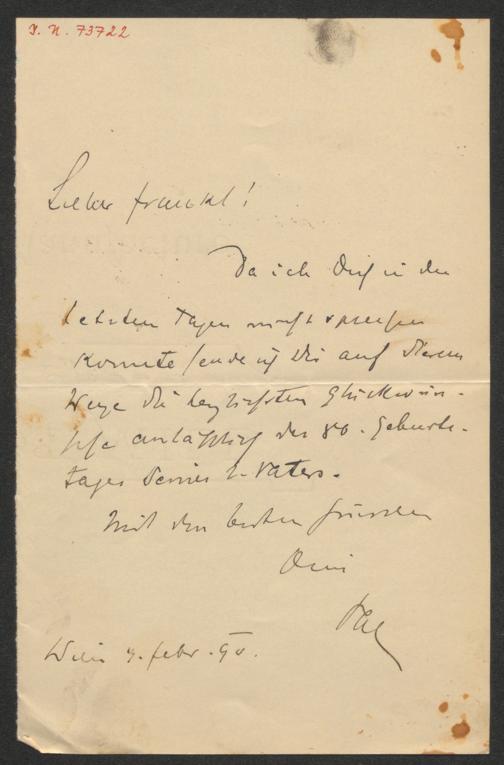 I. N. 73722
Lieber Frankl!
Da ich Dich in den
letzten Tagen nicht sprechen
konnte sende ich Dir auf diesem
Wege die herzlichsten Glückwün-
sche anläßlich des 80. Geburts-
tages Deines l. Vaters.
Mit den besten Grüssen
Dein
Wien 4. Febr. 90.